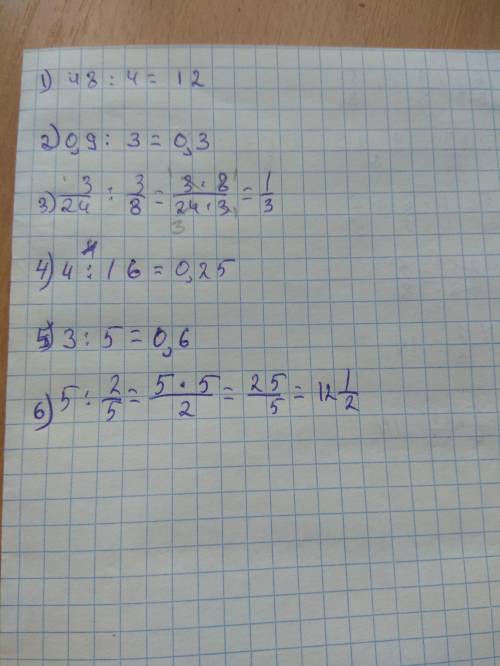 1) 48 : 4 = 12
2) 0,9 : 3 = 0,3
3) 3/24 : 3/8 = 3·8/24·3 = 1/3
3
4) 4 : 16 = 0,25
5) 3 : 5 = 0,6
6) 5 : 2/5 = 5·5/2 = 25/5 = 12 1/2